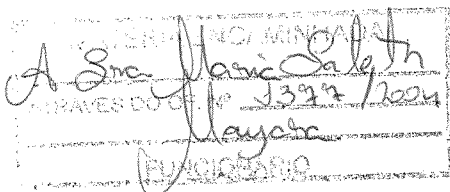 ENCAMINHADA
A Sra Maria Saleth
ATRAVÉS DO OF. Nº 1377/2004
Mayara
FUNCIONÁRIO